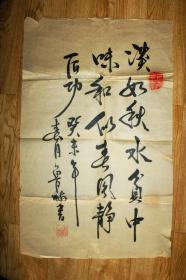 淡如秋水貧中
味和似春風静
后功 癸未年
春月書